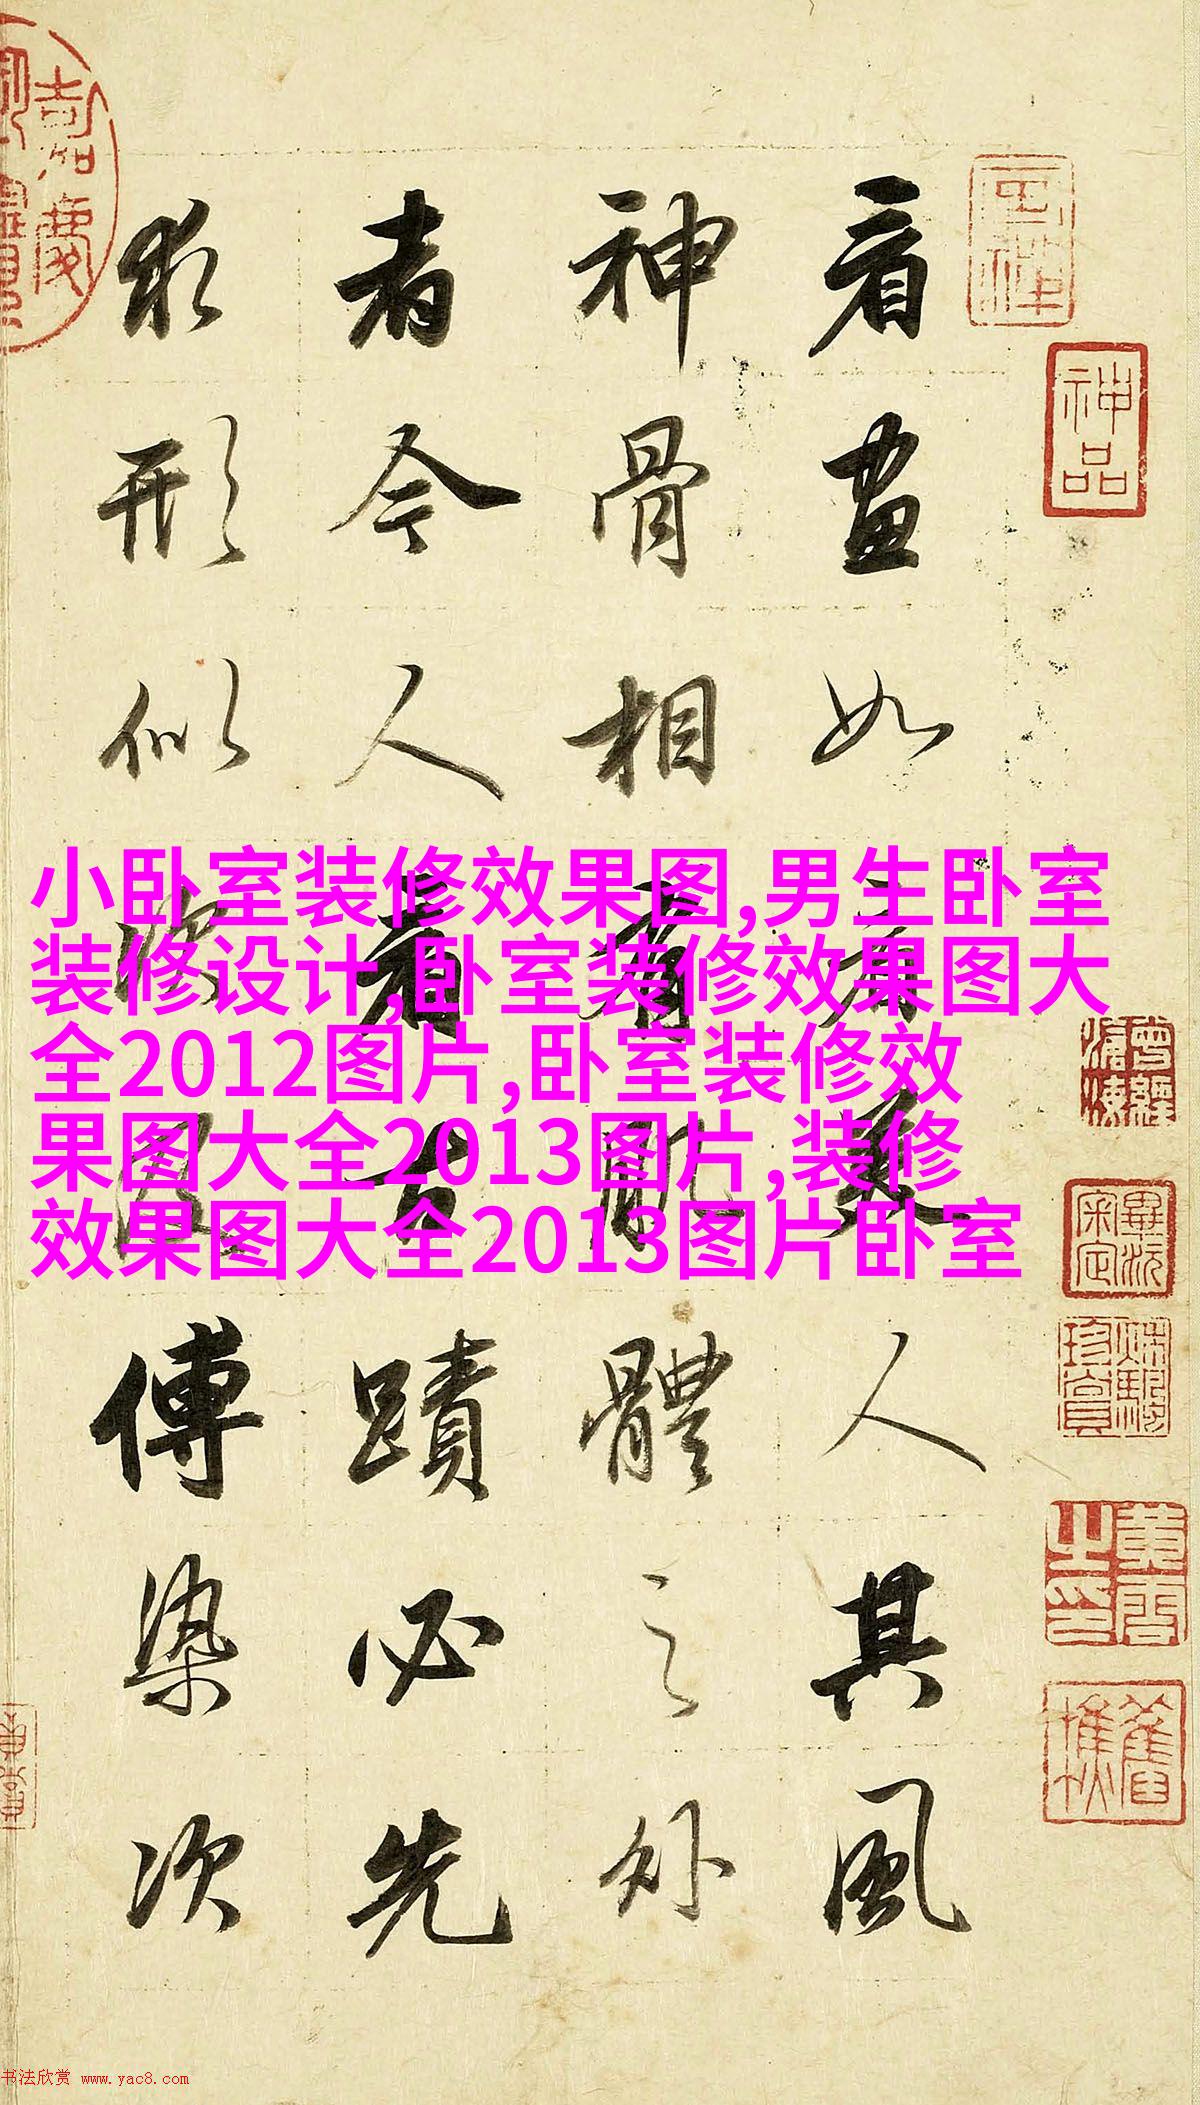 看畫如看美人其風
神骨相有肌體之外
者今人看古蹟必先
求形似次及傅染次
小卧室装修效果图,男生卧室
装修设计,卧室装修效果图大
全2012图片,卧室装修效
果图大全2013图片,装修
效果图大全2013图片卧室
神品
嘉慶
畢沅
审定
珍賞
书法欣赏 www.yac8.com